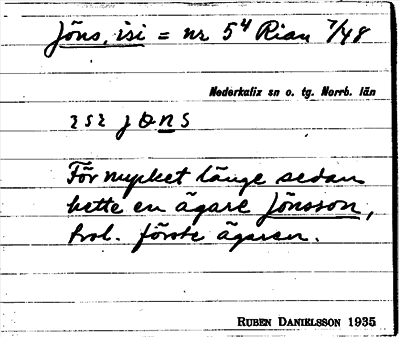 Jöns, isi = nr 5⁴ Rian 7/48
Nederkalix sn o. tg. Norrb. län
För mycket länge sedan
hette en ägare Jönsson,
trol. förste ägaren.
RUBEN DANIELSSON 1935